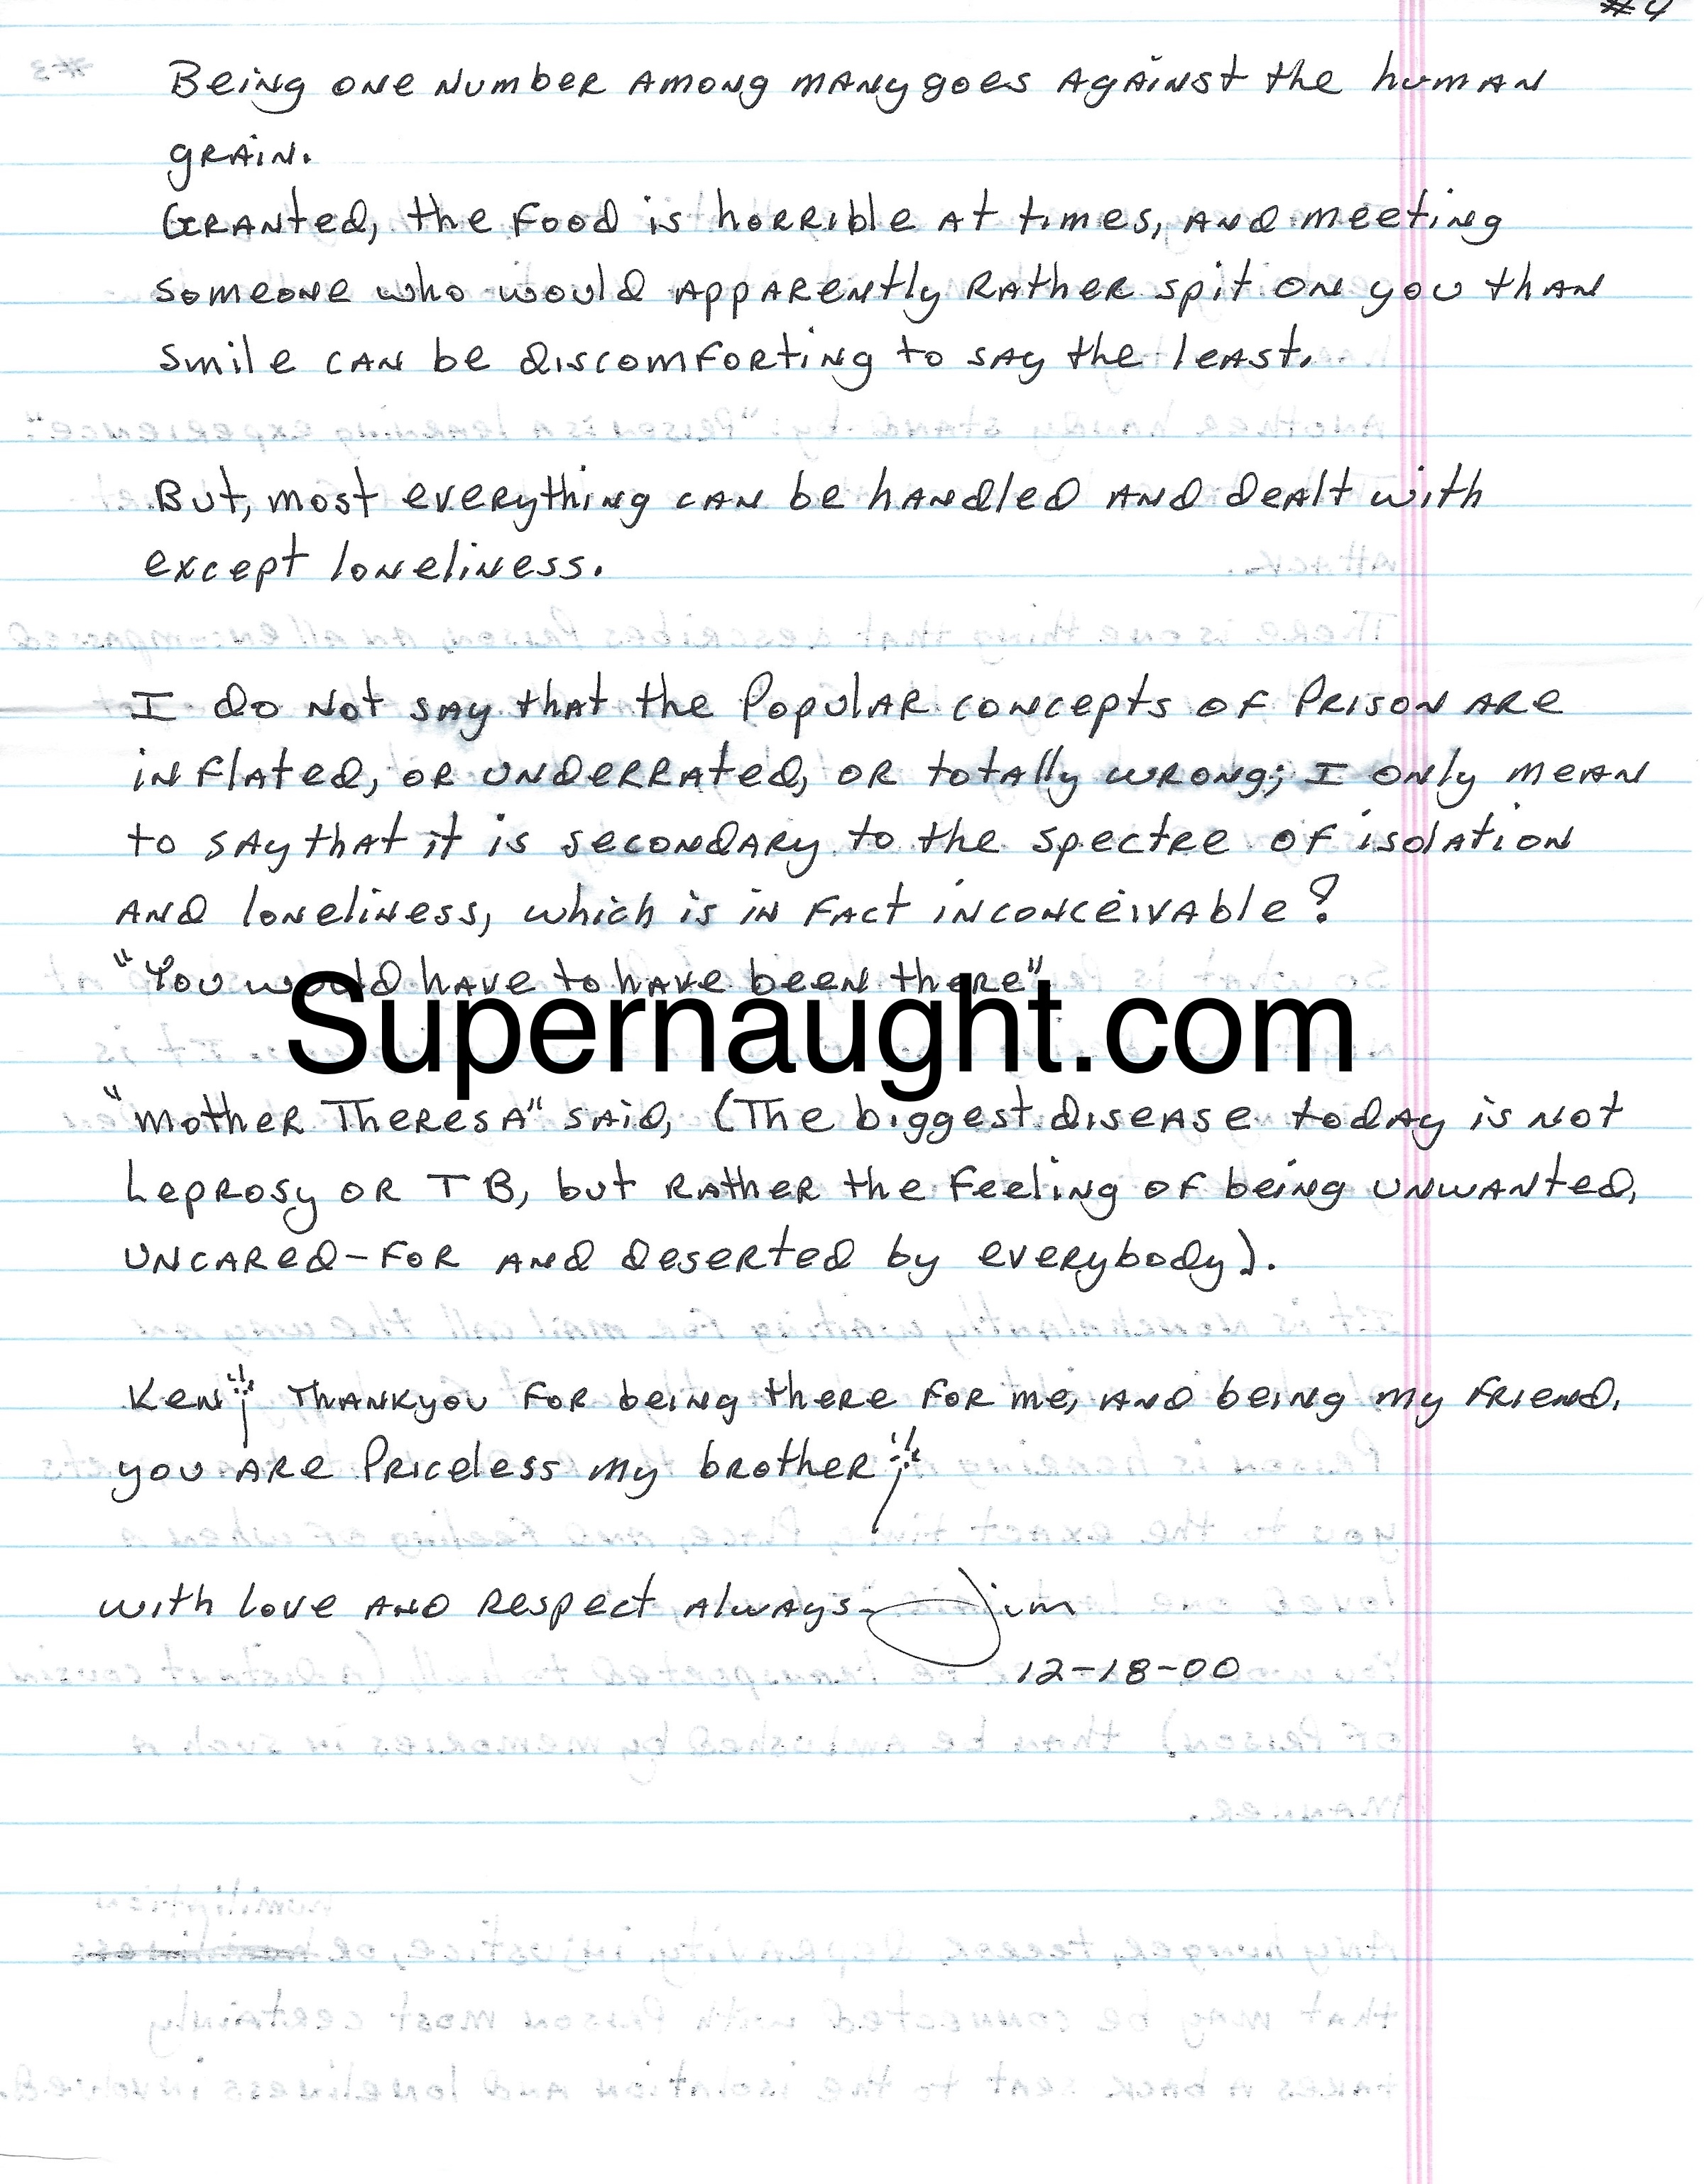 #4
Being one number among many goes against the human
grain.
Granted, the food is horrible at times, and meeting
someone who would apparently rather spit on you than
smile can be discomforting to say the least.
But, most everything can be handled and dealt with
except loneliness.
I do not say that the Popular concepts of Prison are
inflated, or underrated, or totally wrong; I only mean
to say that it is secondary to the spectre of isolation
and loneliness, which is in fact inconceivable?
"You would have to have been there"
Supernaught.com
"Mother Theresa" said, (The biggest disease today is not
Leprosy or TB, but rather the feeling of being unwanted,
uncared-for and deserted by everybody).
Ken! Thankyou for being there for me, and being my friend.
you are Priceless my brother!
with love and respect always- Jim
12-18-00